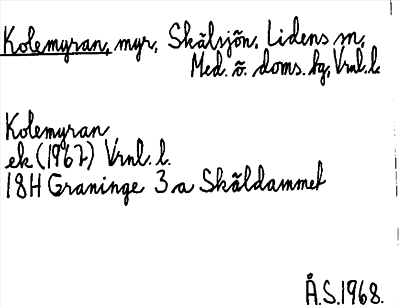 Kolemyran, myr, Skälsjön, Lidens sn,
Med. ö. doms. hg, Vrnl. l.
Kolemyran
ek (1967) Vrnl. l.
18H Graninge 3 a Skäldammet
Å.S. 1968.